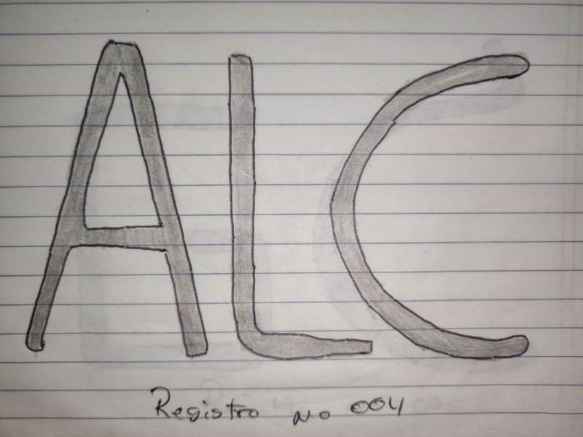 ALC
Registro No 004